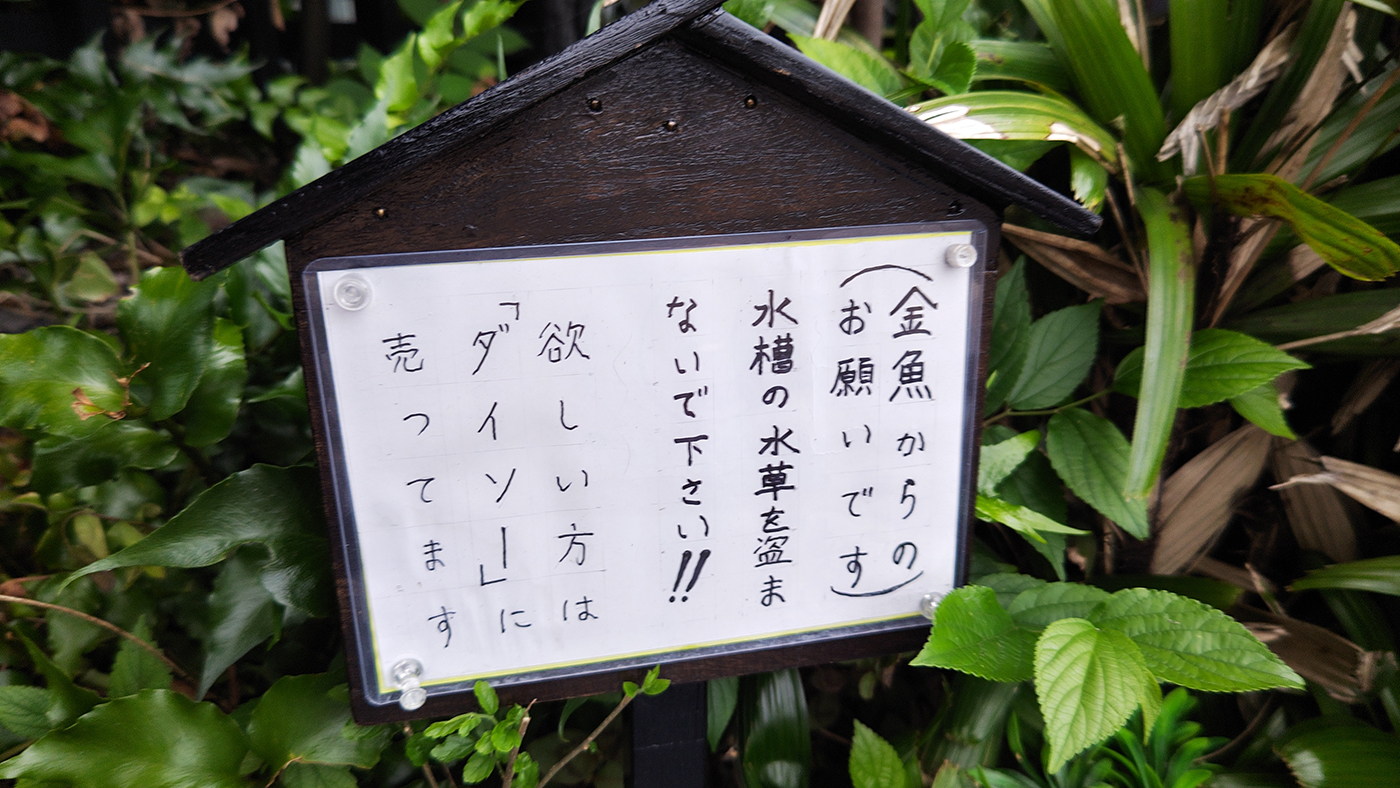 （金魚からの
お願いです）
水槽の水草を盗ま
ないで下さい!!
欲しい方は
「ダイソー」に
売ってます